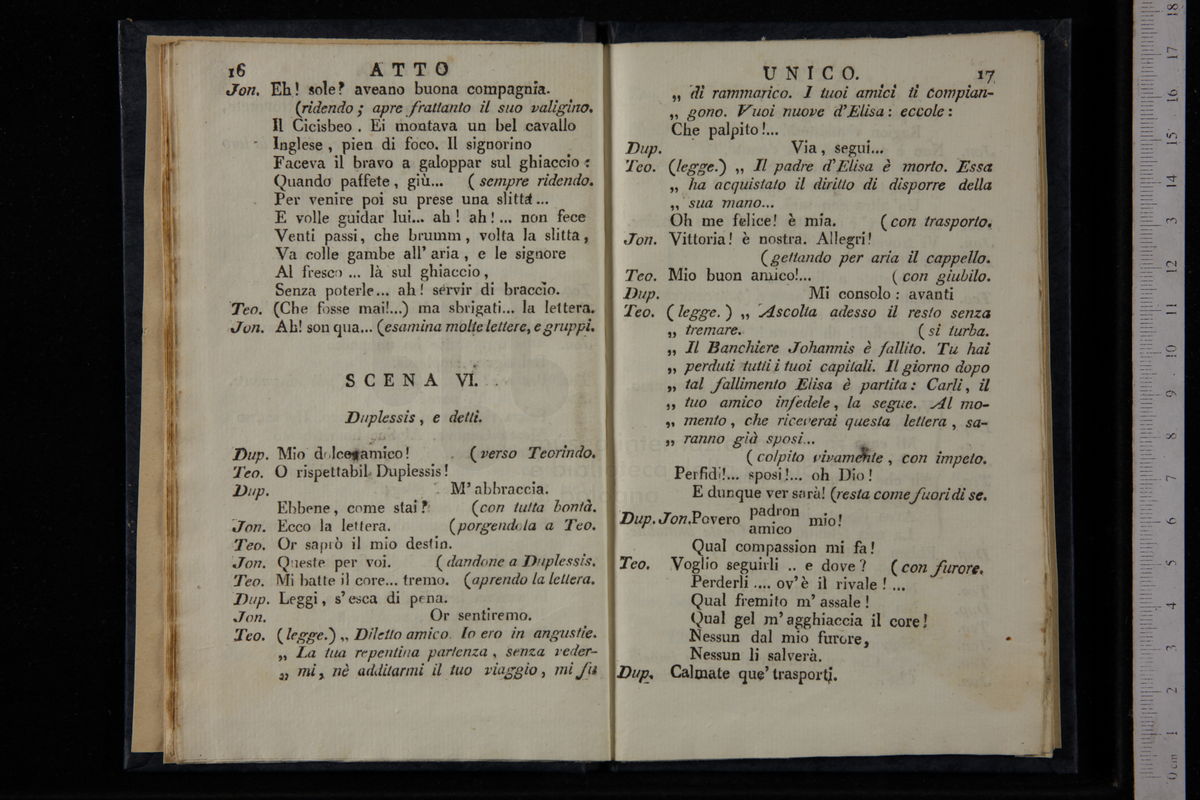 16 ATTO
Jon. Eh! sole? aveano buona compagnia.
(ridendo; apre frattanto il suo valigino.
Il Cicisbeo. Ei montava un bel cavallo
Inglese, pien di foco. Il signorino
Faceva il bravo a galoppar sul ghiaccio:
Quando paffete, giù... (sempre ridendo.
Per venire poi su prese una slitta...
E volle guidar lui... ah! ah!... non fece
Venti passi, che brumm, volta la slitta,
Va colle gambe all' aria, e le signore
Al fresco... là sul ghiaccio,
Senza poterle... ah! servir di braccio.
Teo. (Che fosse mai!...) ma sbrigati... la lettera.
Jon. Ah! son qua... (esamina molte lettere, e gruppi.
SCENA VI.
Duplessis, e detti.
Dup. Mio dolce amico! (verso Teorindo.
Teo. O rispettabil Duplessis!
Dup. M' abbraccia.
Ebbene, come stai? (con tutta bontà.
Jon. Ecco la lettera. (porgendola a Teo.
Teo. Or saprò il mio destin.
Jon. Queste per voi. (dandone a Duplessis.
Teo. Mi batte il core... tremo. (aprendo la lettera.
Dup. Leggi, s' esca di pena.
Jon. Or sentiremo.
Teo. (legge.) „ Diletto amico. Io ero in angustie.
„ La tua repentina partenza, senza veder-
„ mi, nè additarmi il tuo viaggio, mi fu
UNICO. 17
„ di rammarico. I tuoi amici ti compian-
„ gono. Vuoi nuove d'Elisa: eccole:
Che palpito!...
Dup. Via, segui...
Teo. (legge.) „ Il padre d'Elisa è morto. Essa
„ ha acquistato il diritto di disporre della
„ sua mano...
Oh me felice! è mia. (con trasporto.
Jon. Vittoria! è nostra. Allegri!
(gettando per aria il cappello.
Teo. Mio buon amico!... (con giubilo.
Dup. Mi consolo: avanti
Teo. (legge.) „ Ascolta adesso il resto senza
„ tremare. (si turba.
„ Il Banchiere Johannis è fallito. Tu hai
„ perduti tutti i tuoi capitali. Il giorno dopo
„ tal fallimento Elisa è partita: Carli, il
„ tuo amico infedele, la segue. Al mo-
„ mento, che riceverai questa lettera, sa-
„ ranno già sposi...
(colpito vivamente, con impeto.
Perfidi!... sposi!... oh Dio!
E dunque ver sarà! (resta come fuori di se.
Dup. Jon. Povero padron mio!
amico
Qual compassion mi fa!
Teo. Voglio seguirli .. e dove? (con furore.
Perderli .... ov' è il rivale! ...
Qual fremito m' assale!
Qual gel m' agghiaccia il core!
Nessun dal mio furore,
Nessun li salverà.
Dup. Calmate que' trasporti.